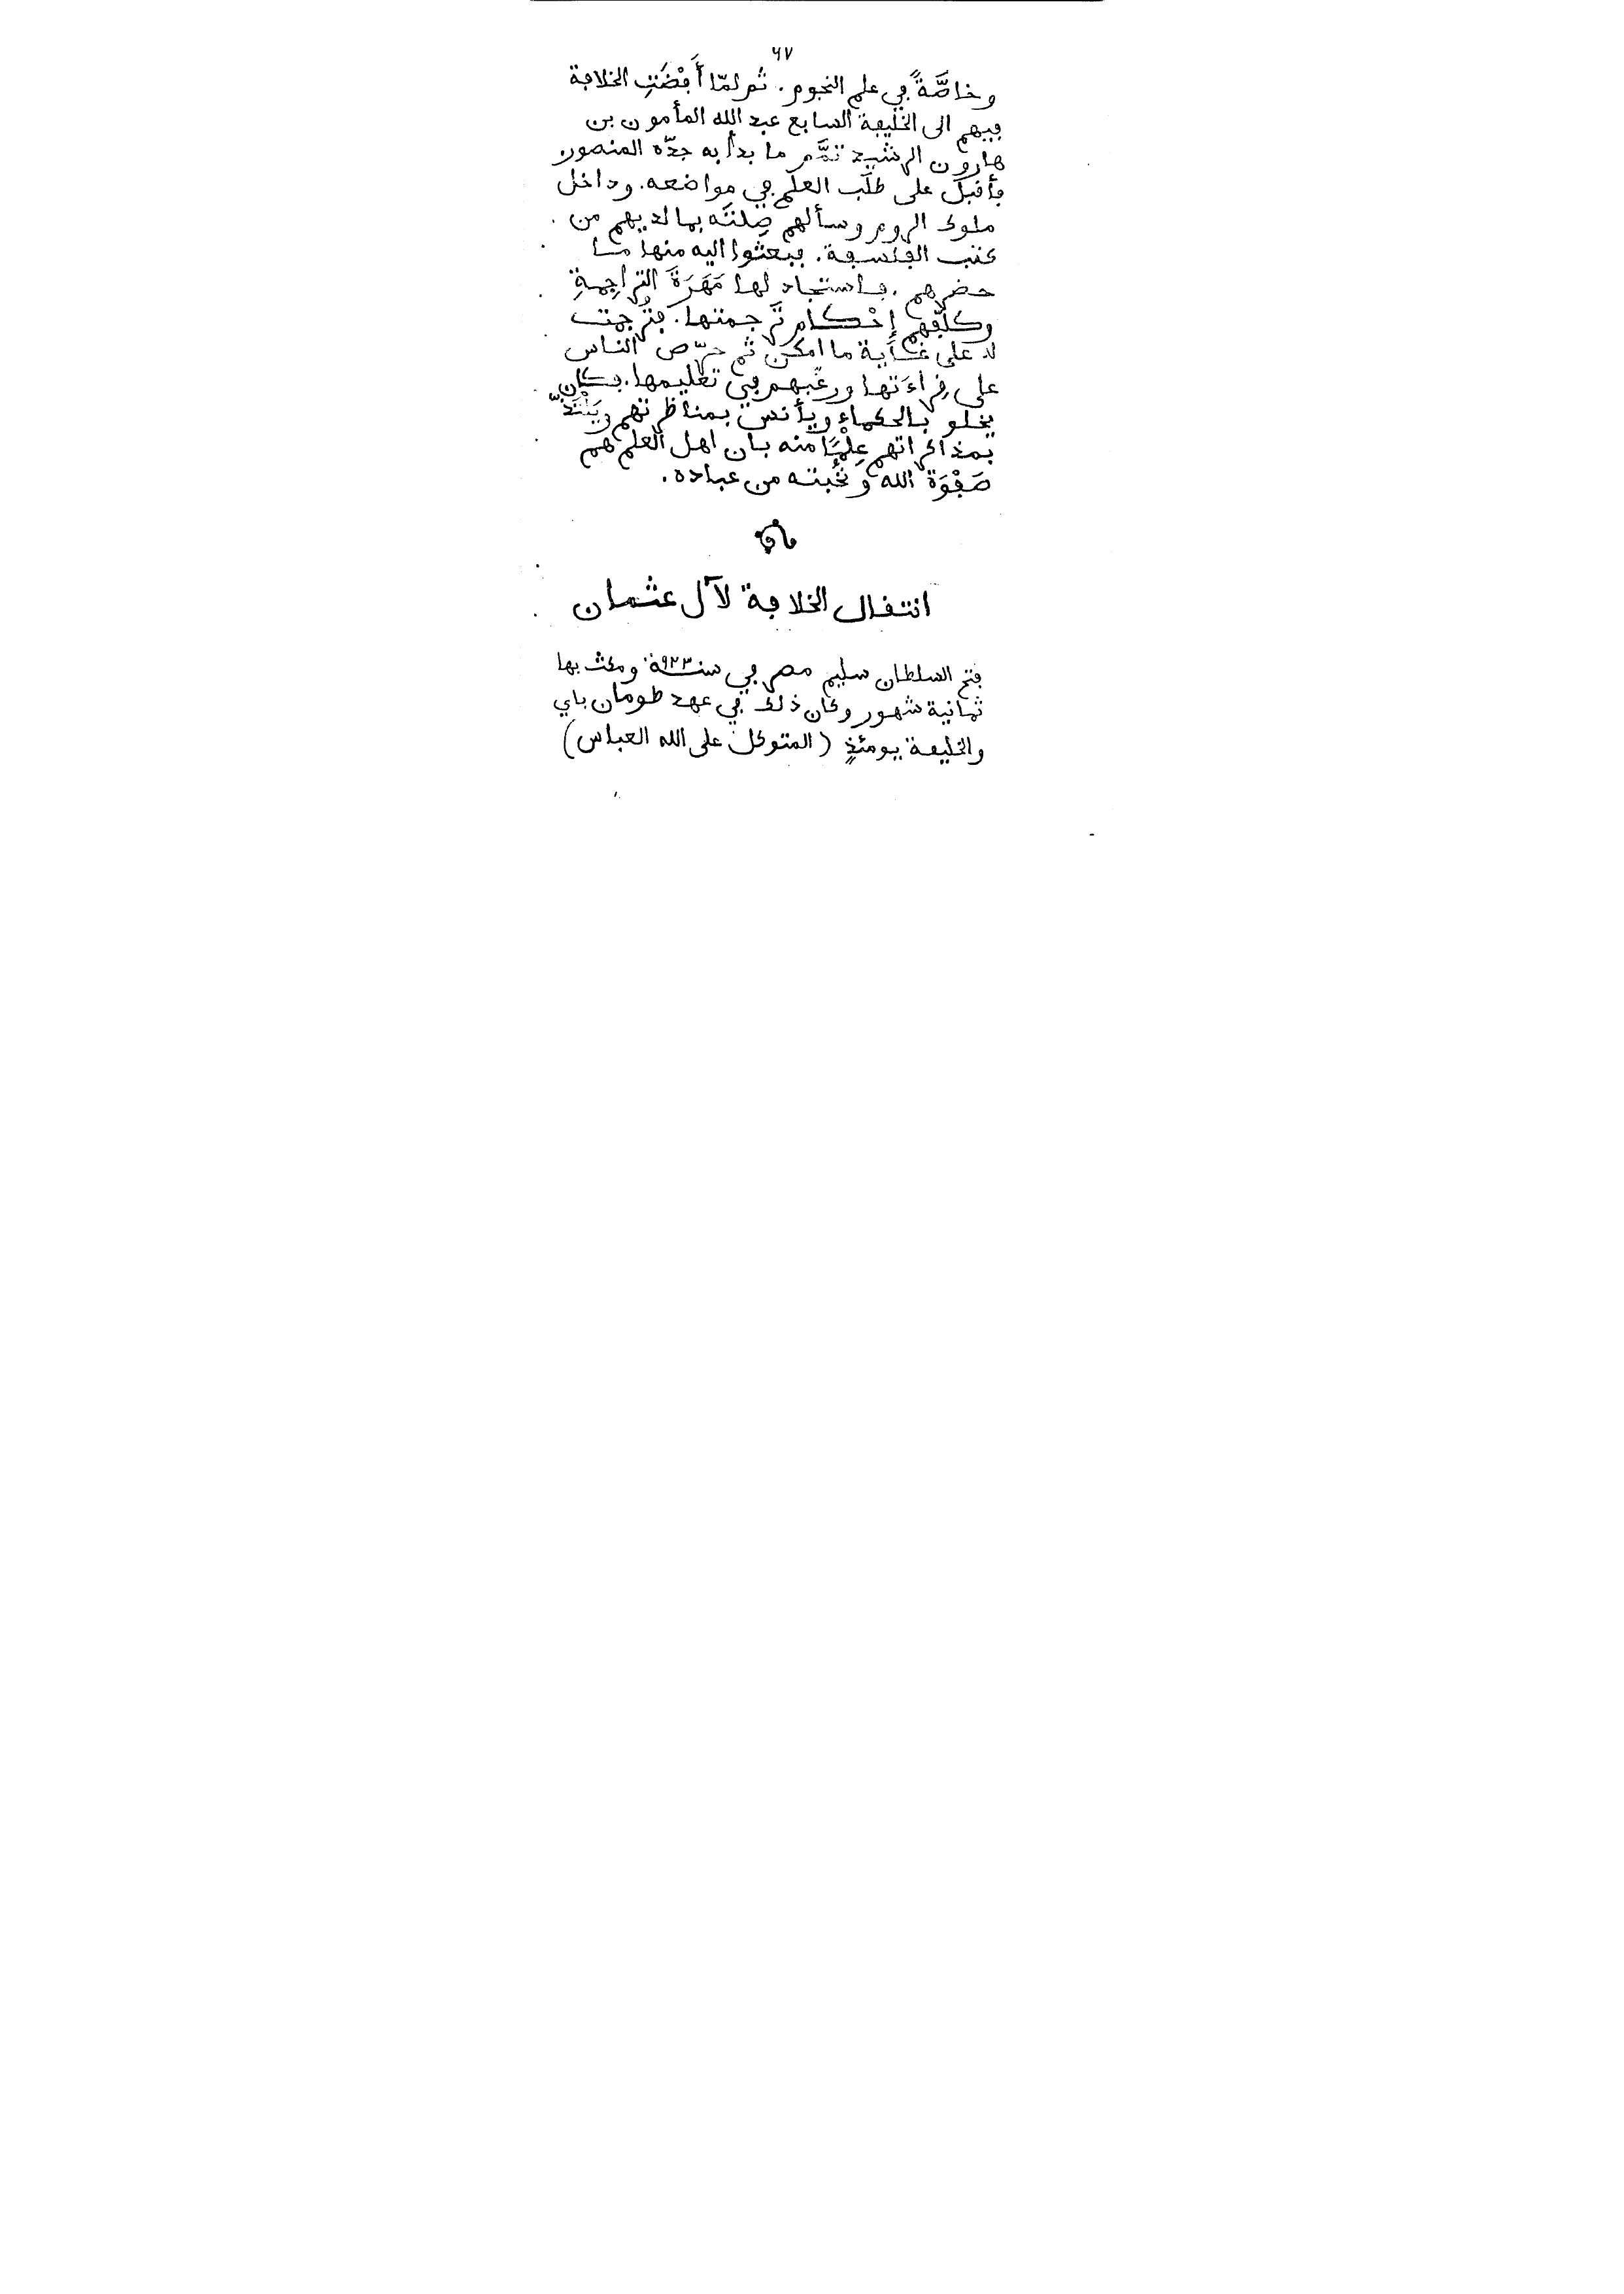 ٦٧
وخاصَّةً في علم النجوم. ثم لمّا أَفْضَتِ الخلافة
فيهم الى الخليفة السابع عبد الله المأمون بن
هارون الرشيد تمَّم ما بدأ به جدّه المنصور
فأقبل على طلَب العلم في مواضعه. وداخل
ملوك الروم وسألهم صِلتَه بما لديهم من
كتب الفلسفة. فبعثوا اليه منها ما
حضرهم. فاستجاد لها مَهَرَةَ التراجِمةِ
وكلَّفهم إحْكام تَرجمتها. فتُرجمت
له على غاية ما امكن ثم حرّص الناس
على قِراءَتها ورغّبهم في تعليمها. فكان
يخلو بالحكماء ويأنس بمناظرتهم ويَلْتَذّ
بمذاكراتهم عِلْمًا منه بان اهل العلم هم
صَفْوَة الله ونُخبته من عباده.
انتقال الخلافة لآل عثمان
فتح السلطان سليم مصر في سنة ٩٢٣ ومكث بها
ثمانية شهور وكان ذلك في عهد طومان باي
والخليفة يومئذٍ (المتوكل على الله العباس)